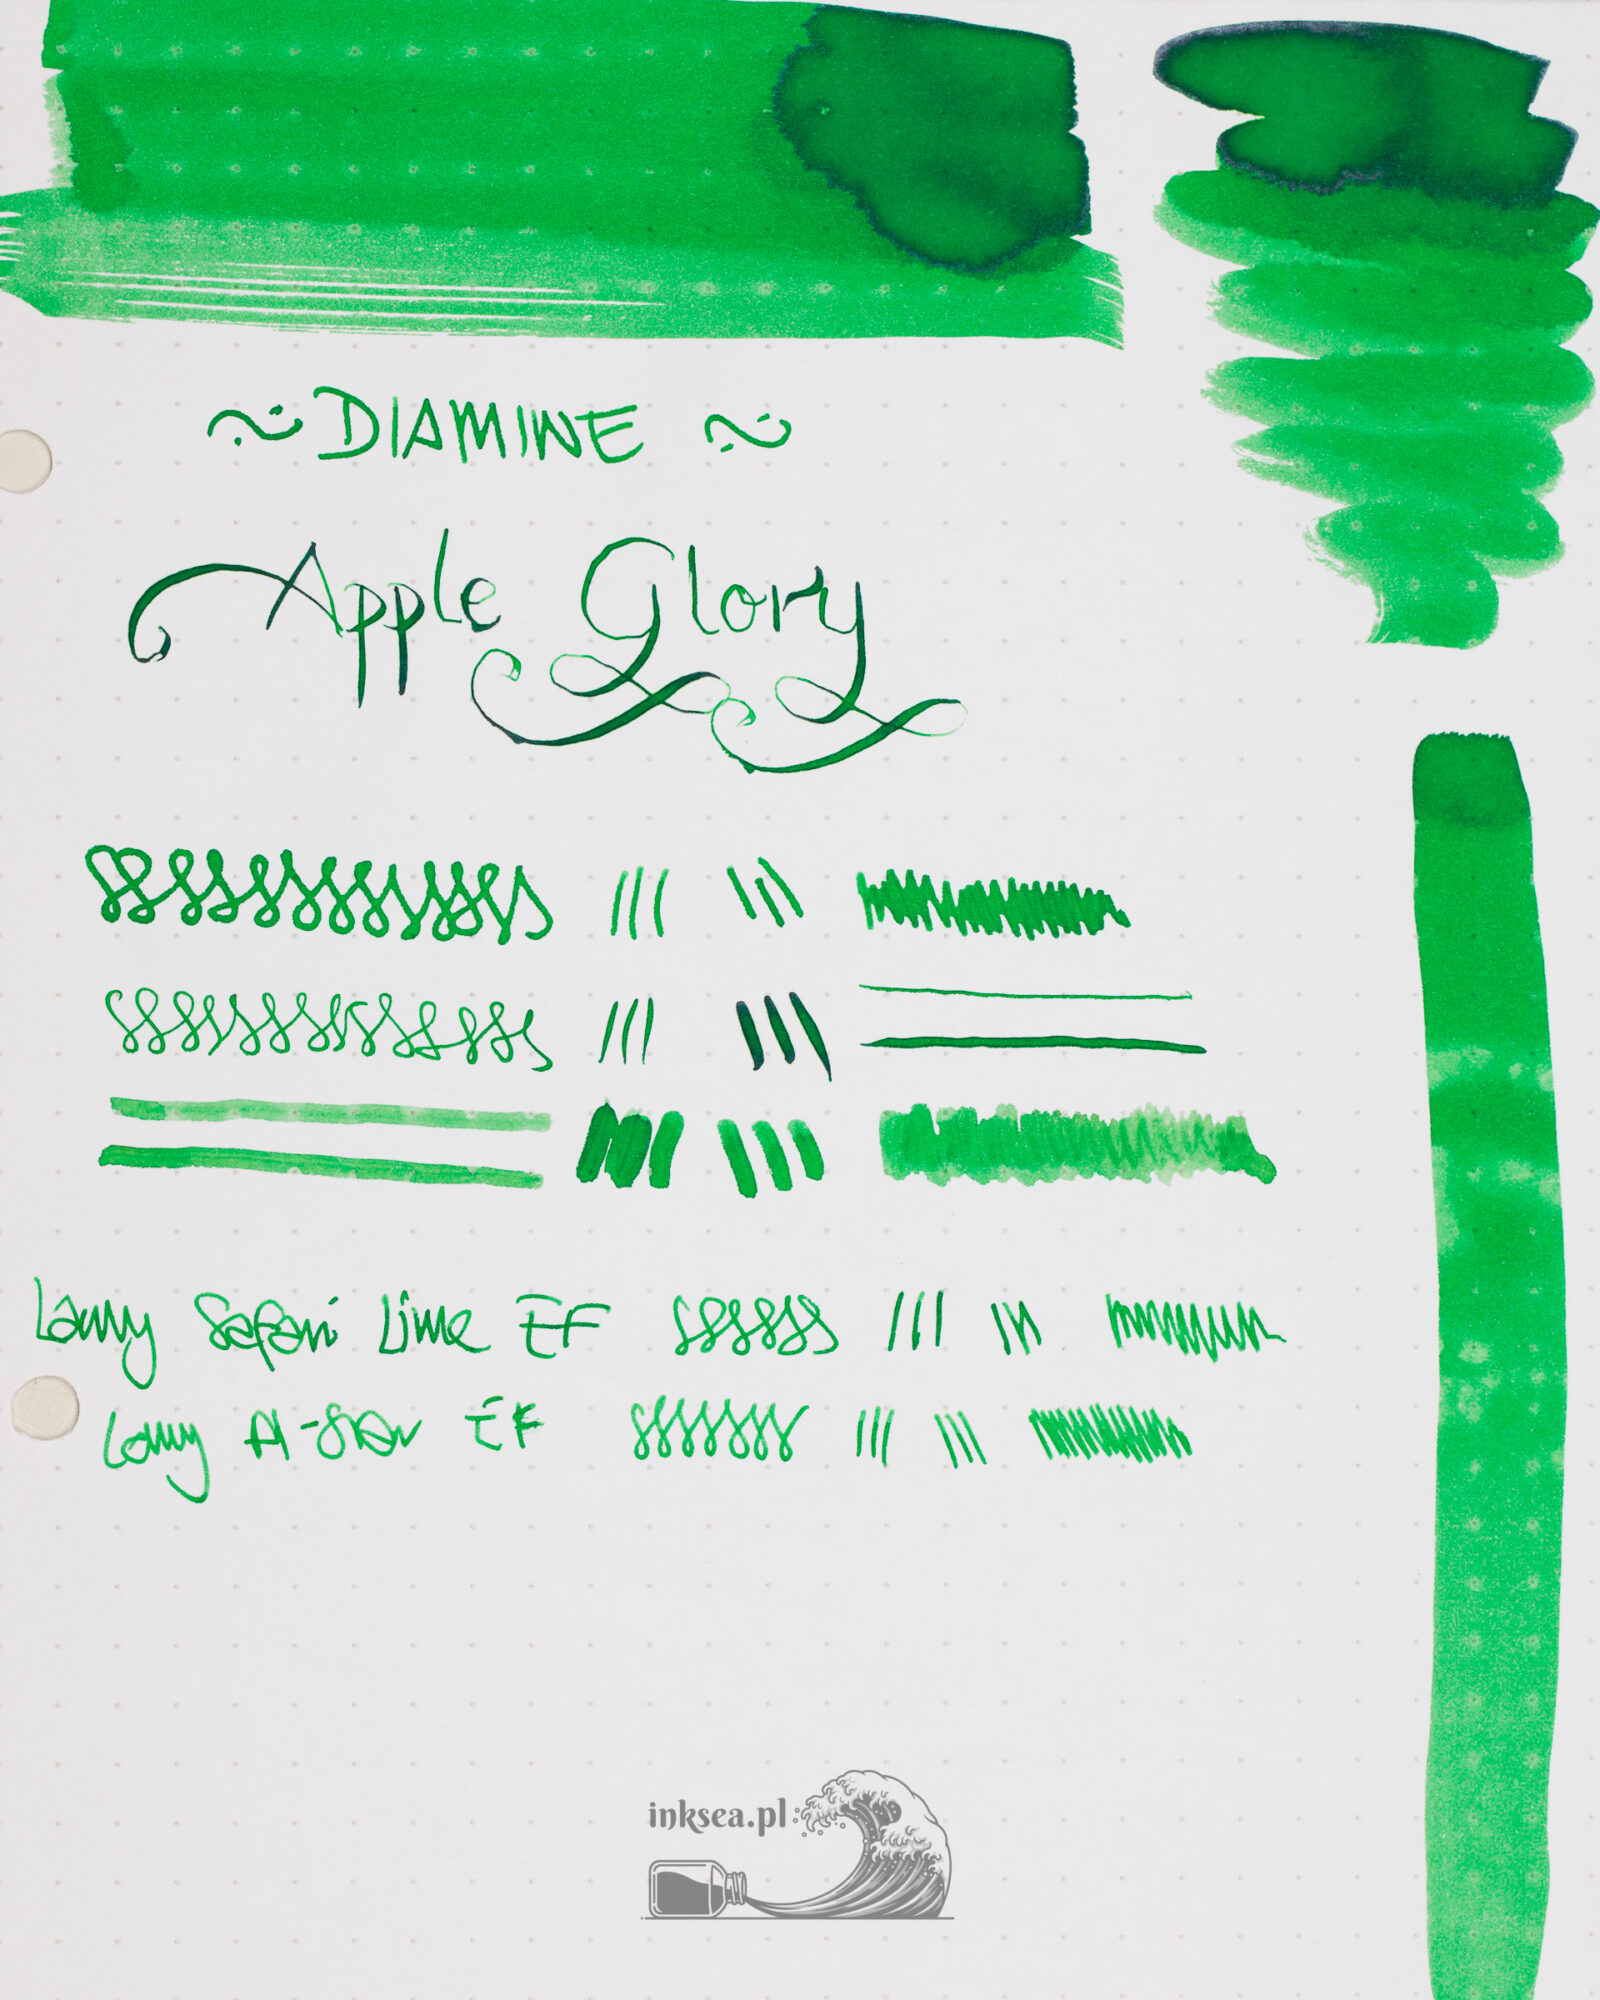 ~ DIAMINE ~
Apple Glory
Lamy Safari Lime EF
Lamy Al-Star EF
inksea.pl